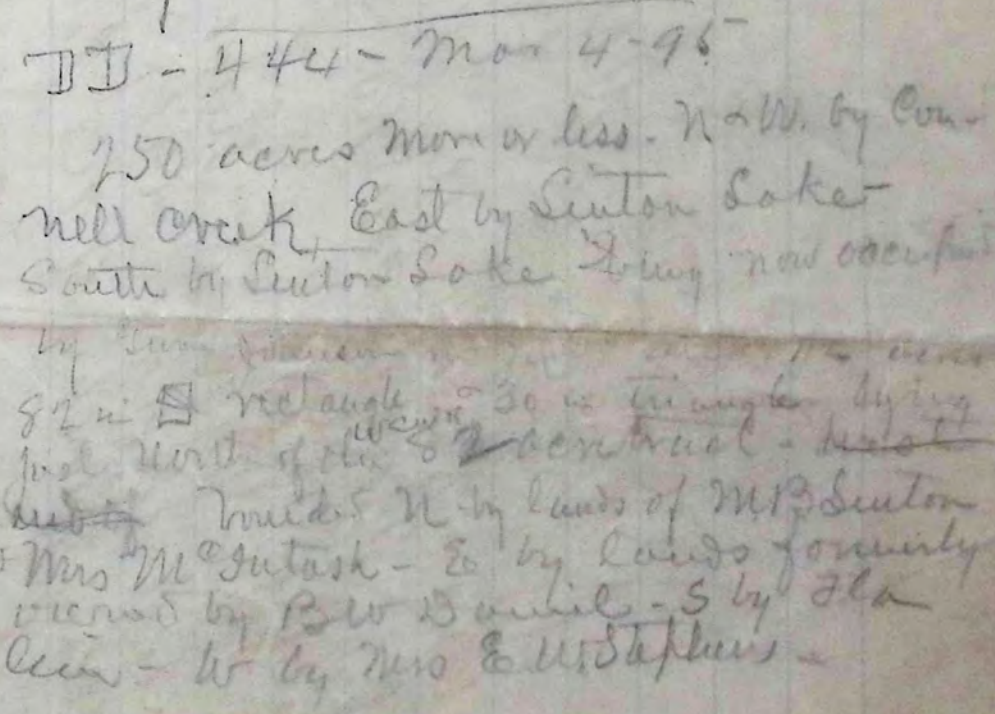 DD - 444 - Mar 4-95
250 acres more or less. N & W. by Con-
nell creek, East by Linton Lake
South by Linton Lake being now occupied
by
82 in rectangle 30 in triangle lying
just North of the 82 acre tract -
bounded N by lands of M B Linton
+ Mrs McIntosh - E by lands formerly
owned by B W Daniel - S by Fla
line - W by Mrs E W Stephens -